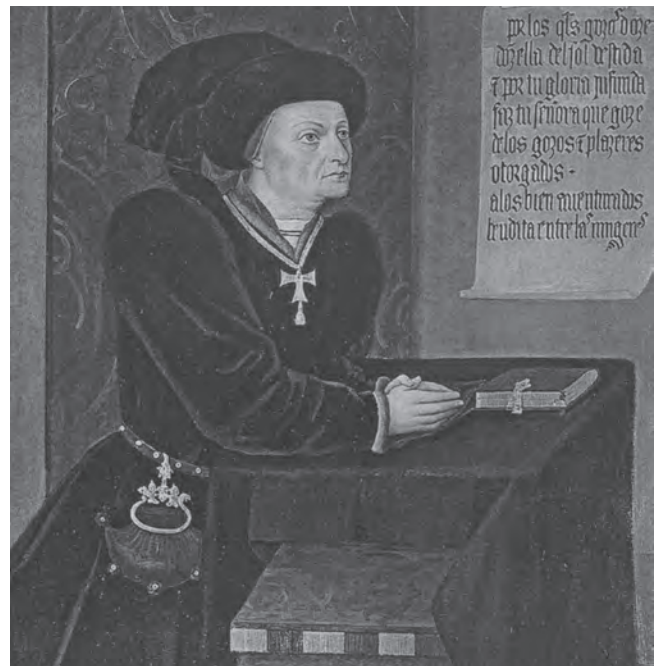 por los qls gozoˢ doze
dõzella del sol vestida
⁊ por tu gloria infinida
faz tu señora que goze
delos gozos ⁊ plazeres
otorgados ·
alos bien auenturados
bendita entre laˢ mugereˢ